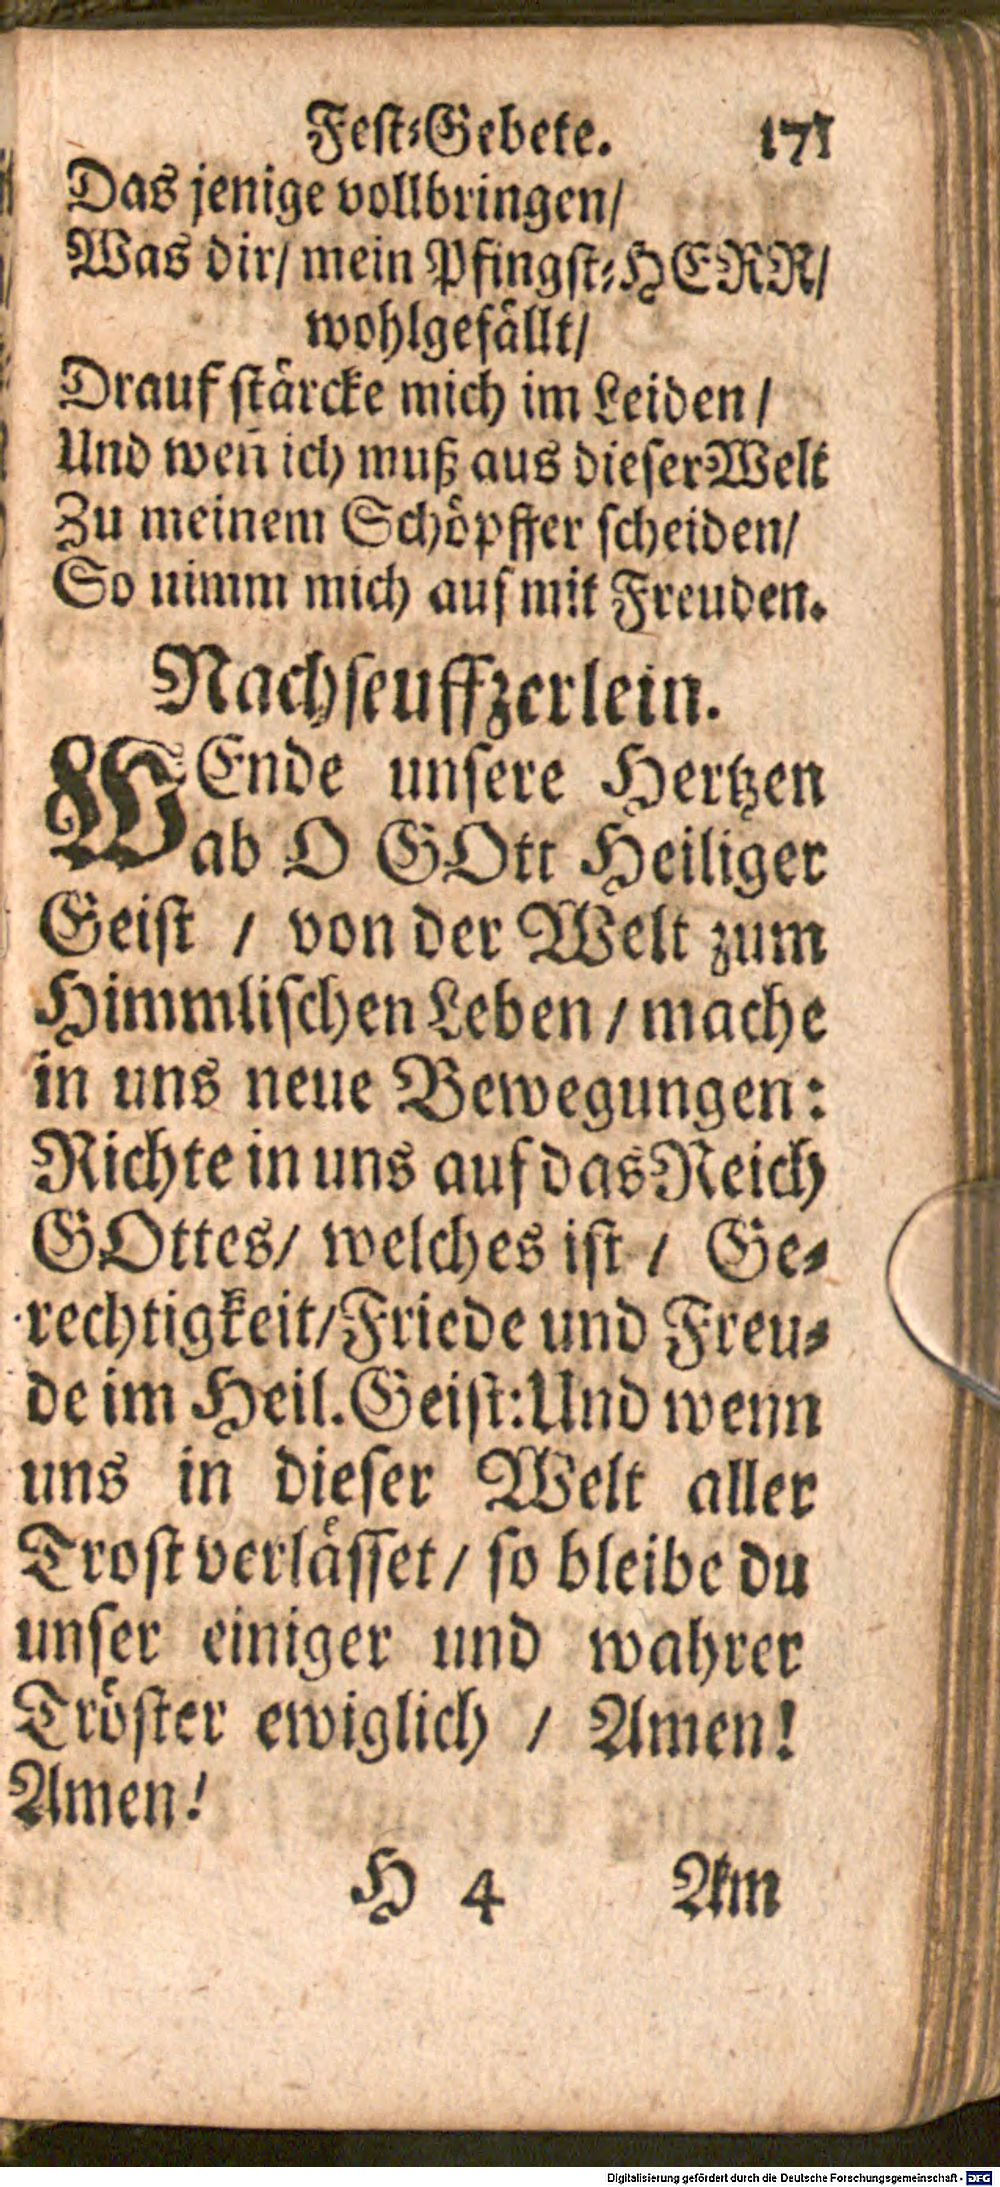 Feſt⸗Gebete. 171
Das jenige vollbringen/
Was dir/ mein Pfingſt⸗HERR/
wohlgefaͤllt/
Drauf ſtaͤrcke mich im Leiden /
Und weñ ich muß aus dieſer Welt
Zu meinem Schoͤpffer ſcheiden/
So nimm mich auf mit Freuden.
Nachſeuffzerlein.
WEnde unſere Hertzen
ab O GOtt Heiliger
Geiſt / von der Welt zum
Himmliſchen Leben / mache
in uns neue Bewegungen:
Richte in uns auf das Reich
GOttes/ welches iſt / Ge⸗
rechtigkeit/Friede und Freu⸗
de im Heil. Geiſt: Und wenn
uns in dieſer Welt aller
Troſt verlaͤſſet / ſo bleibe du
unſer einiger und wahrer
Troͤſter ewiglich / Amen!
Amen!
H 4 Am
Digitalisierung gefördert durch die Deutsche Forschungsgemeinschaft - DFG